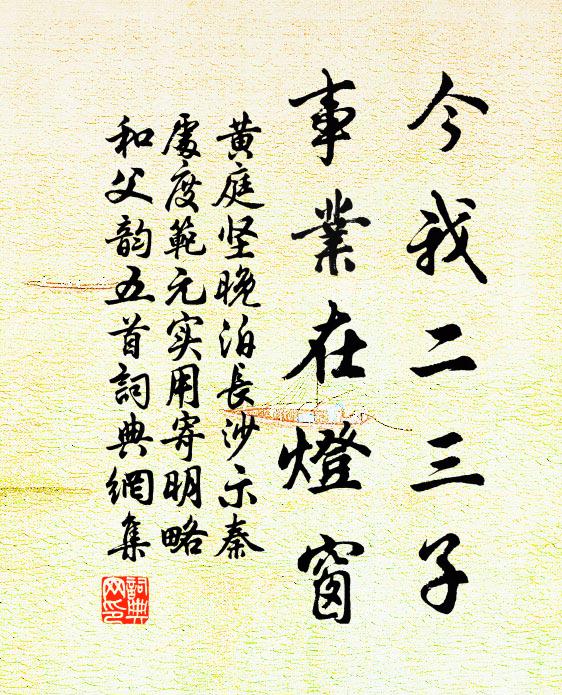 今我二三子
事業在燈窗
黄庭坚晚泊長沙示秦
處度範元实用寄明略
和父韵五首詞典網集
詞典网印